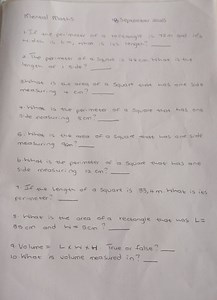 Mental Maths
1. If the perimeter of a rectangle is and its
width is what is its length?
2. The perimeter of a square is What is the
length of 1 side?
3. What is the area of a square that has one side
measuring cm?
4. What is the perimeter of a square that has one
side measuring cm?
5. What is the area of a square that has one side
measuring
6. What is the perimeter of a square that has one
side measuring cm?
7. If one length of a square is What is its
perimeter?
8. What is the area of a rectangle that has L=
cm and
9. Volume = L x H x H True or False?
10. What is volume measured in?